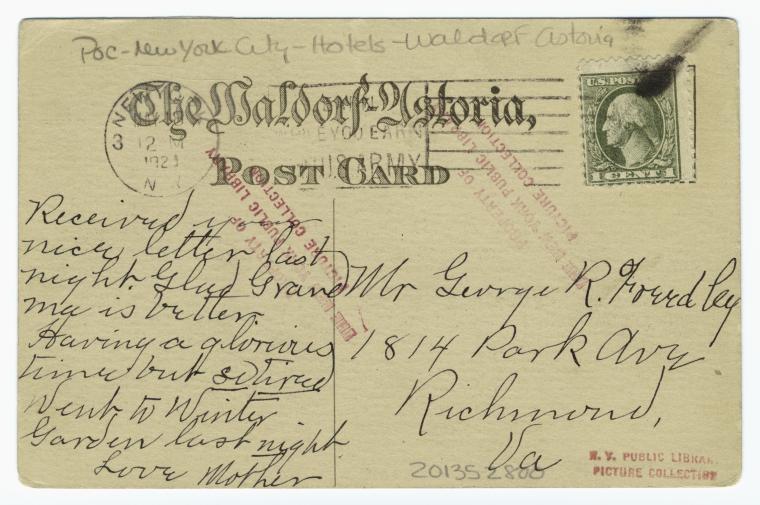 Poc-New York City-Hotels-Waldorf Astoria
The Waldorf-Astoria,
Post Card
NEW
3
12 M
1921
N.Y.
YOU EARN
ARMY
U.S. POST
1 CENT 1
PROPERTY OF
NEW YORK PUBLIC LIBRARY
PICTURE COLLECTION
PROPERTY OF
THE NEW YORK PUBLIC LIBRARY
PICTURE COLLECTION
Received your
nice letter last
night. Glad Grand
ma is better.
Having a glorious
time but so tired
Went to Winter
Garden last night
Love Mother
Mr George R.
1814 Park Ave
Richmond,
Va
201352800
N. Y. PUBLIC LIBRARY
PICTURE COLLECTION